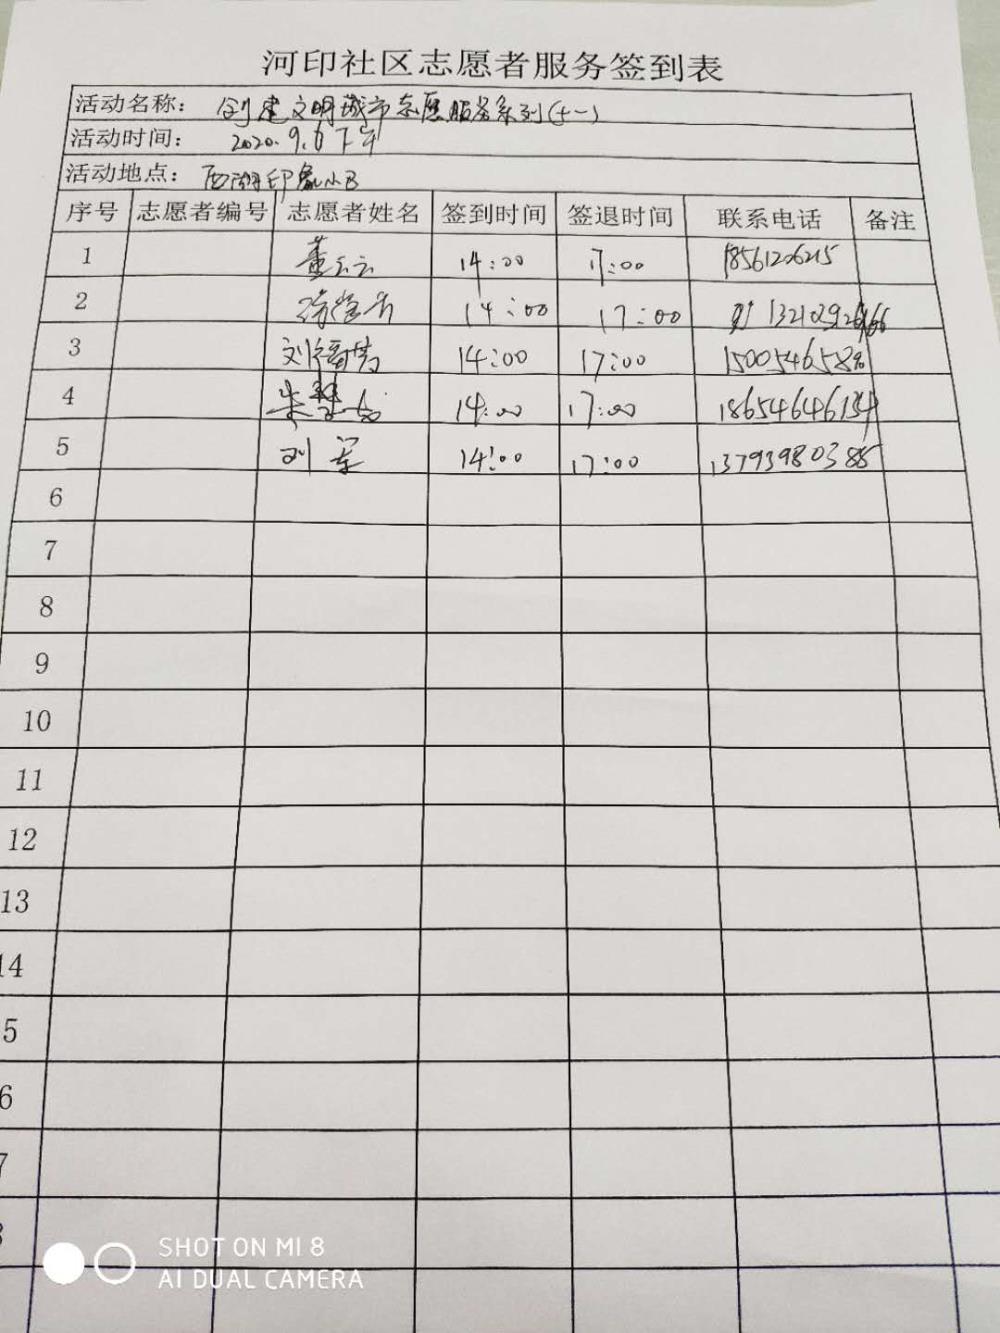 河印社区志愿者服务签到表
活动名称： 创建文明城市志愿服务系列(十一)
活动时间： 2020.9.6下午
活动地点： 西湖印象小区
序号 志愿者编号 志愿者姓名 签到时间 签退时间 联系电话 备注
1 董云云 14:00 17:00 18561226215
2 14:00 17:00
3 14:00 17:00
4 朱 14:00 17:00 18654646134
5 刘军 14:00 17:00 13793980385
6
7
8
9
10
11
12
13
14
5
6
7
SHOT ON MI 8
AI DUAL CAMERA